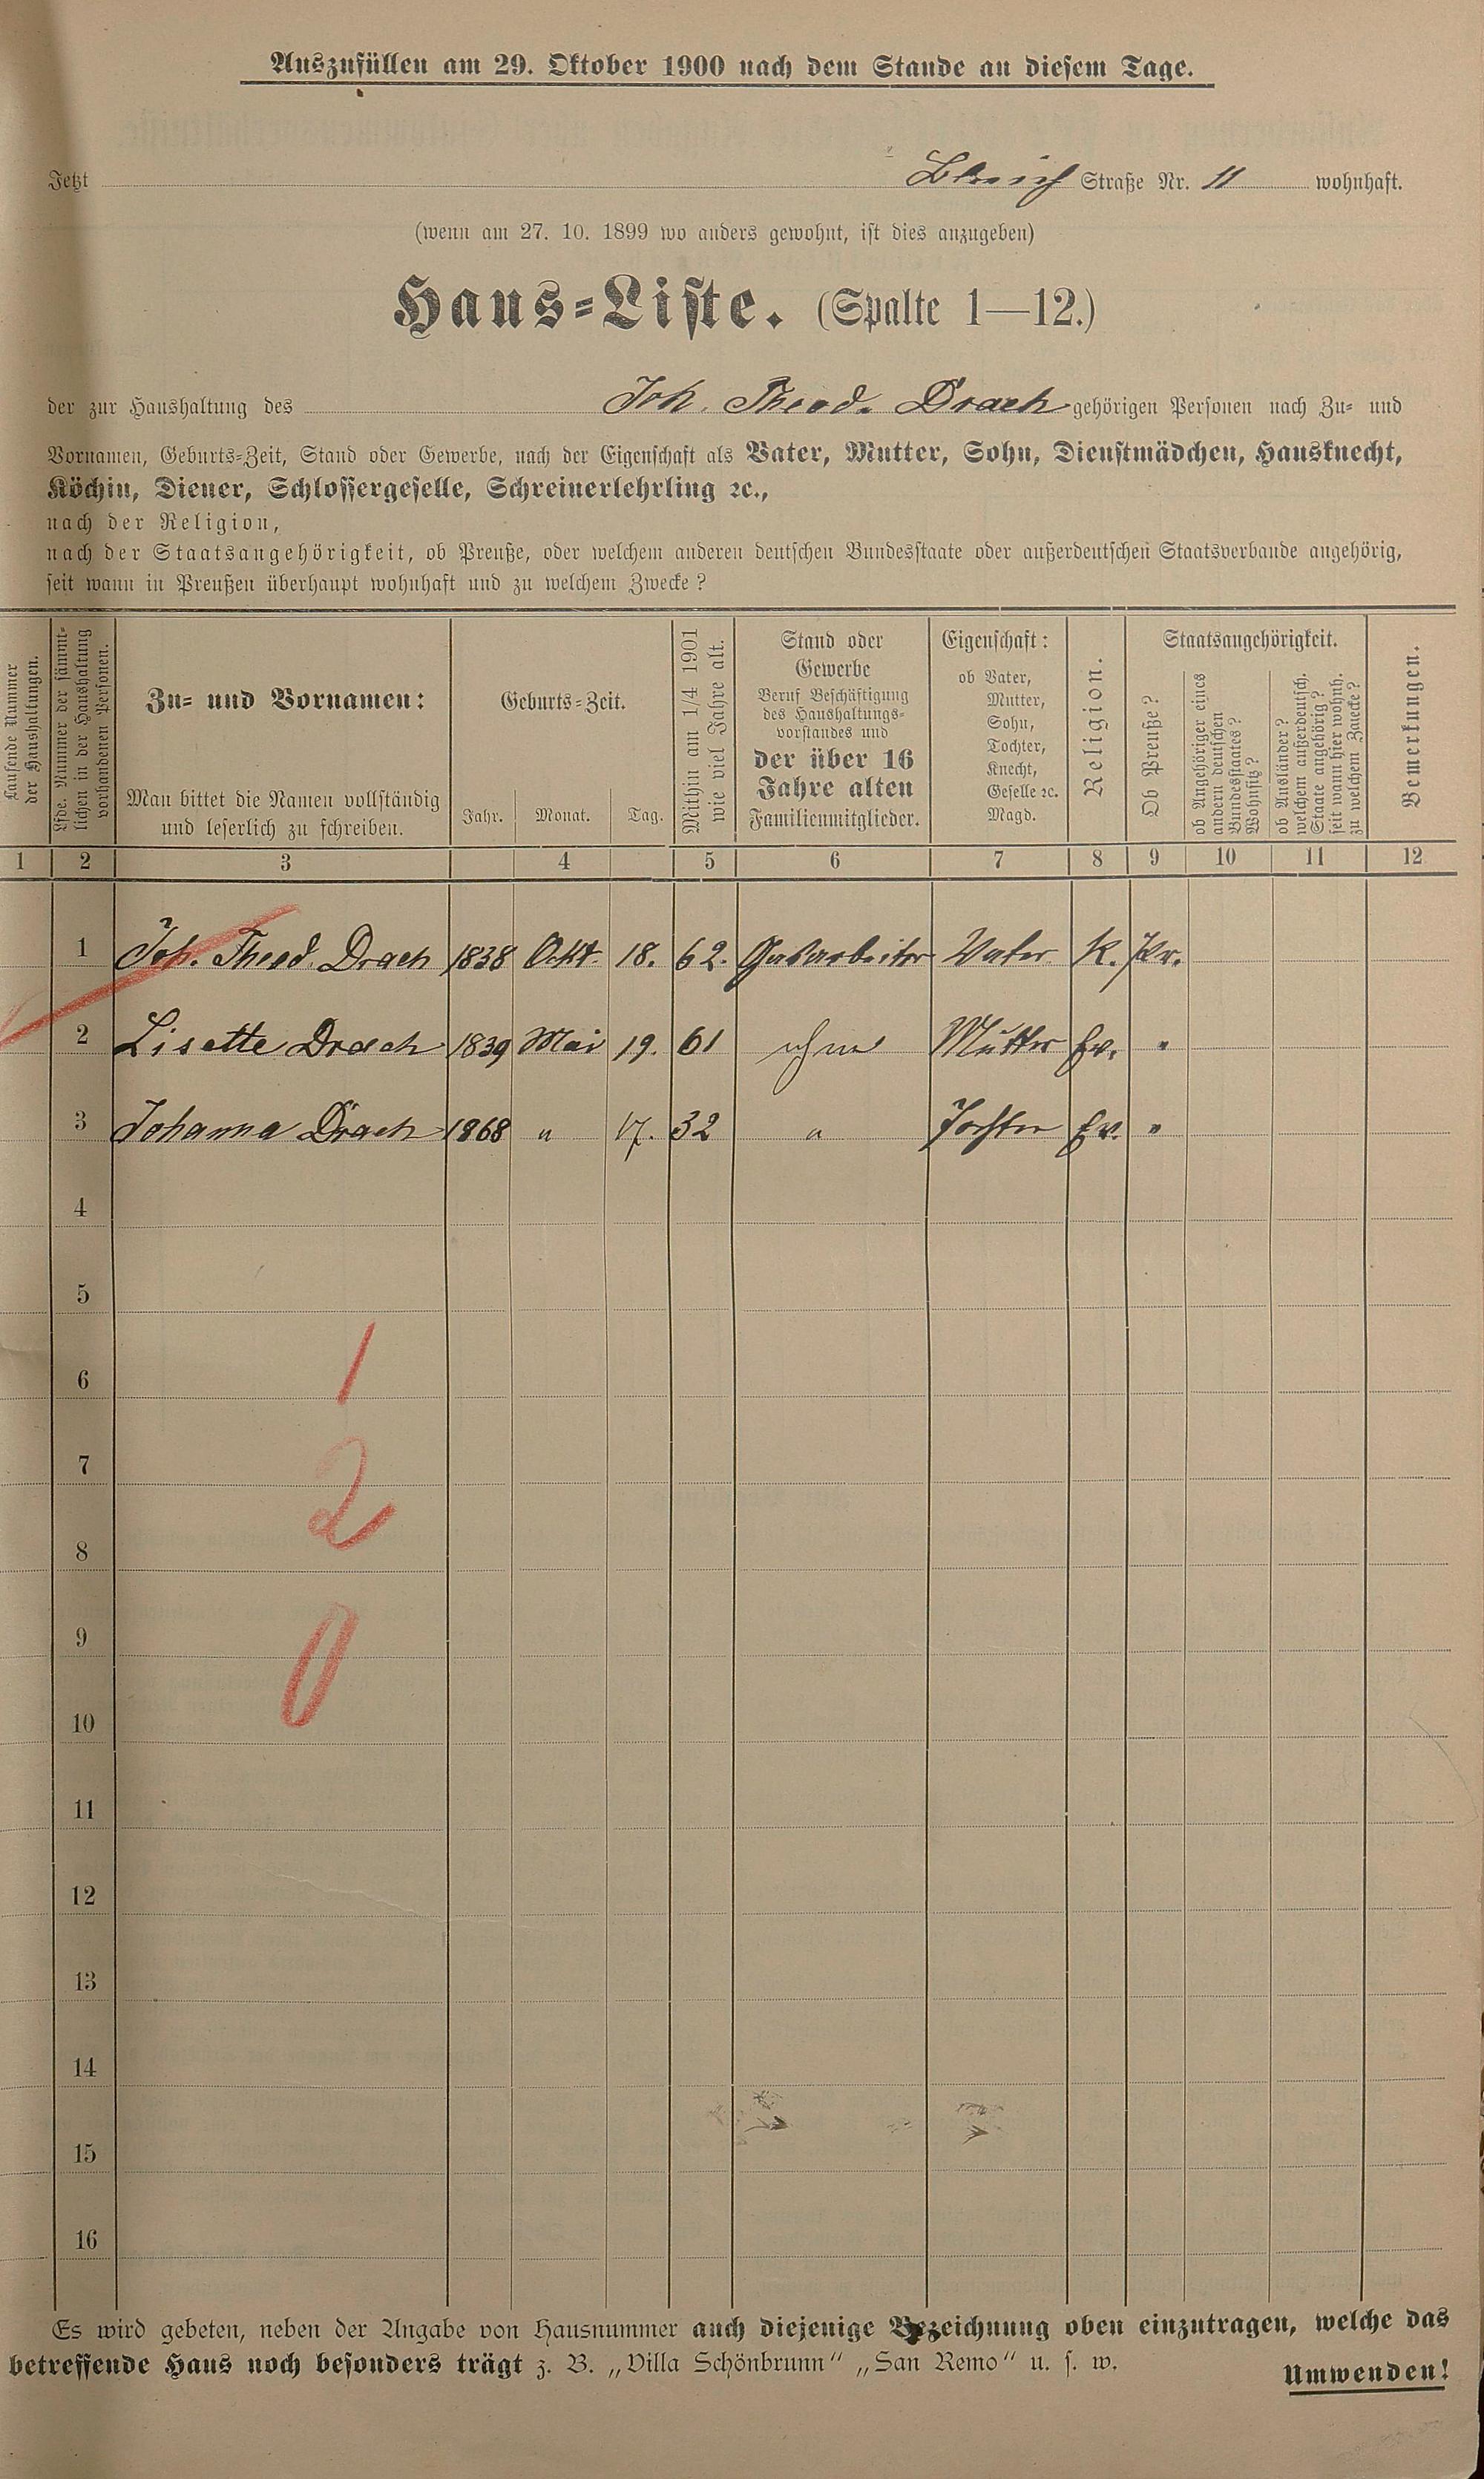 Auszufüllen am 29. Oktober 1900 nach dem Stande an diesem Tage.
Jetzt Bleich Straße Nr. 11 wohnhaft.
(wenn am 27. 10. 1899 wo anders gewohnt, ist dies anzugeben)
Haus-Liste. (Spalte 1—12.)
der zur Haushaltung des Joh. Theod. Drach gehörigen Personen nach Zu- und
Vornamen, Geburts-Zeit, Stand oder Gewerbe, nach der Eigenschaft als Vater, Mutter, Sohn, Dienstmädchen, Hausknecht,
Köchin, Diener, Schlossergeselle, Schreinerlehrling ꝛc.,
nach der Religion,
nach der Staatsangehörigkeit, ob Preuße, oder welchem anderen deutschen Bundesstaate oder außerdeutschen Staatsverbande angehörig,
seit wann in Preußen überhaupt wohnhaft und zu welchem Zwecke?
Laufende Nummer
der Haushaltungen.
Lfde. Nummer der sämmt-
lichen in der Haushaltung
vorhandenen Personen.
Zu- und Vornamen:
Man bittet die Namen vollständig
und leserlich zu schreiben.
Geburts-Zeit.
Jahr. Monat. Tag.
Mithin am 1/4 1901
wie viel Jahre alt.
Stand oder
Gewerbe
Beruf Beschäftigung
des Haushaltungs-
vorstandes und
der über 16
Jahre alten
Familienmitglieder.
Eigenschaft:
ob Vater,
Mutter,
Sohn,
Tochter,
Knecht,
Geselle ꝛc.
Magd.
Religion.
Staatsangehörigkeit.
Ob Preuße?
ob Angehöriger eines
andern deutschen
Bundesstaates?
Wohnsitz?
ob Ausländer?
welchem außerdeutsch.
Staate angehörig?
seit wann hier wohnh.
zu welchem Zwecke?
Bemerkungen.
1 2 3 4 5 6 7 8 9 10 11 12
1 Joh. Theod. Drach 1838 Okt. 18. 62. Gasarbeiter Vater K. Pr.
2 Lisette Drach 1839 Mai 19. 61 ohne Mutter Ev. "
3 Johanna Drach 1868 " 17. 32 " Tochter Ev. "
4
5
6 1
7 2
8
9 0
10
11
12
13
14
15
16
Es wird gebeten, neben der Angabe von Hausnummer auch diejenige Bezeichnung oben einzutragen, welche das
betreffende Haus noch besonders trägt z. B. „Villa Schönbrunn" „San Remo" u. s. w.
Umwenden!